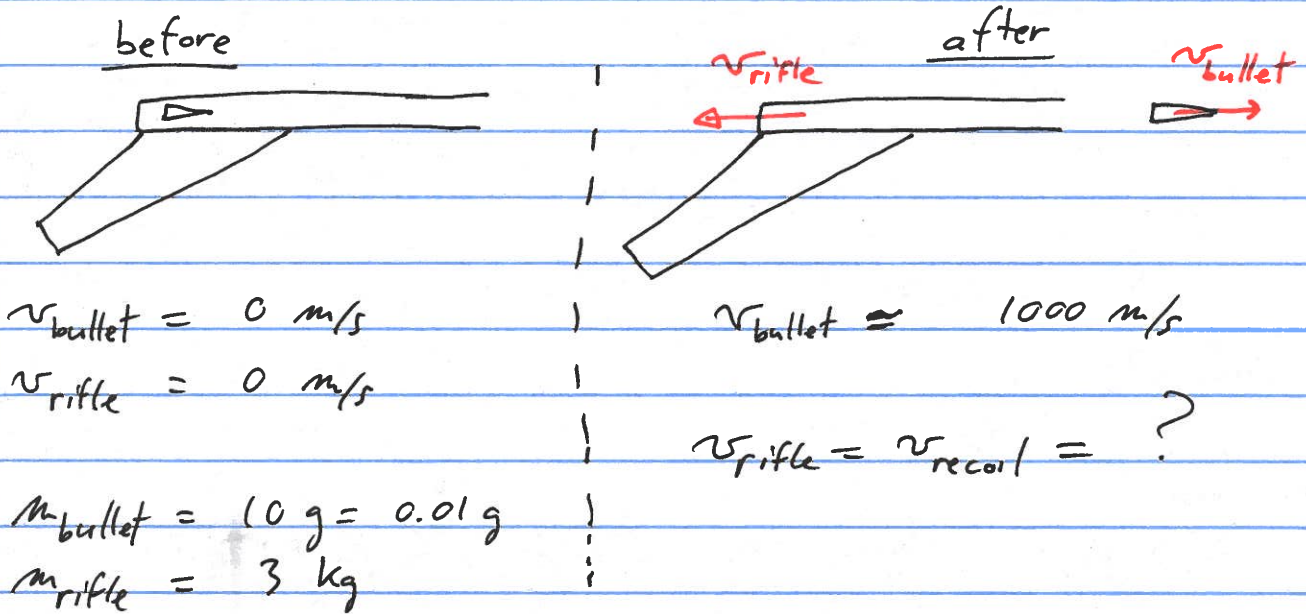 before
v bullet = 0 m/s
v rifle = 0 m/s
m bullet = 10 g = 0.01 g
m rifle = 3 kg
after
v rifle
v bullet
v bullet ≃ 1000 m/s
v rifle = v recoil = ?